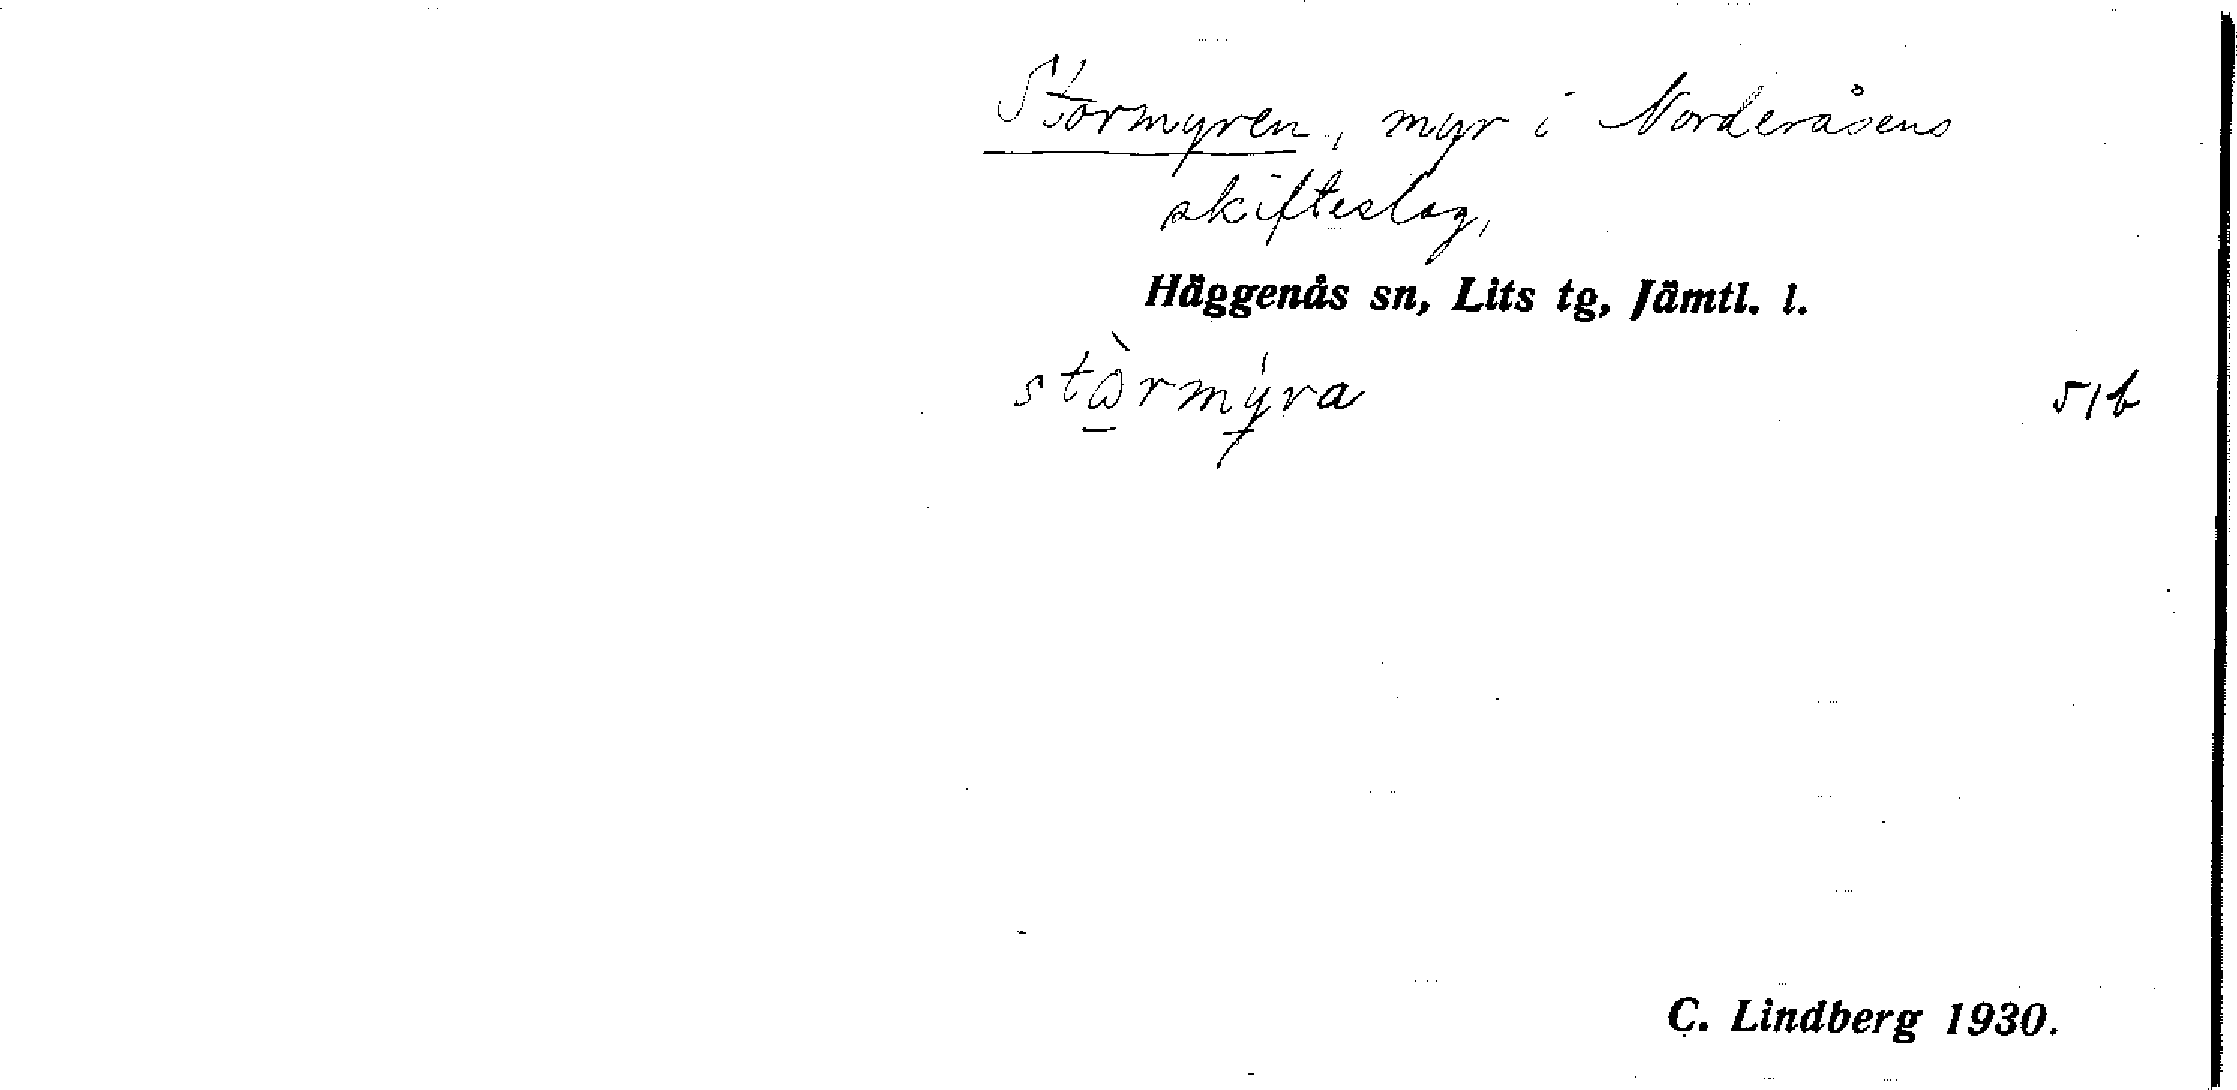 Stormyren, myr i Norderåsens
skifteslag,
Häggenås sn, Lits tg, Jämtl. l.
stὼrmýra 51b
C. Lindberg 1930.